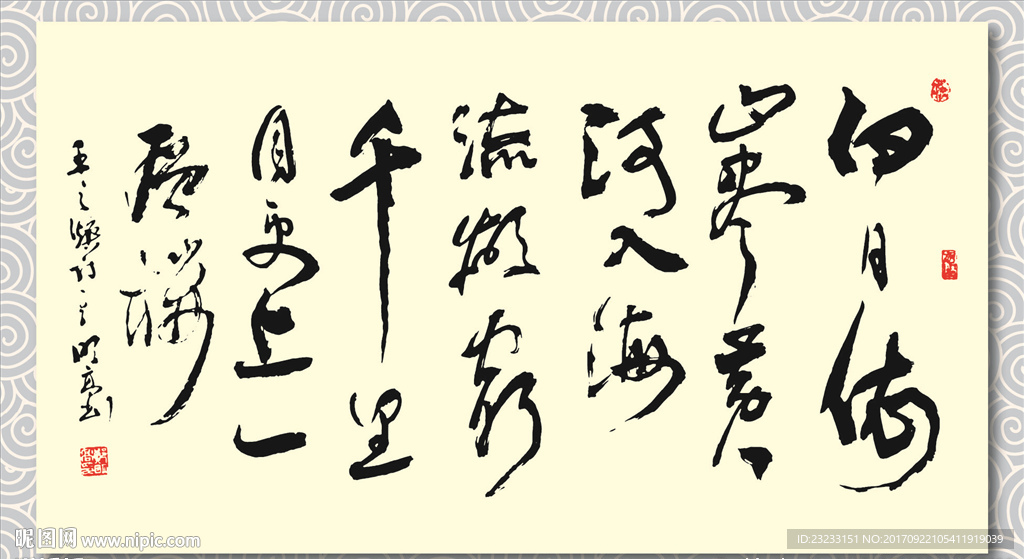 白日依
山尽黄
河入海
流欲窮
千里
目更上一
層樓
王之涣诗
昵图网 www.nipic.com
ID:23233151 NO:20170922105411919039